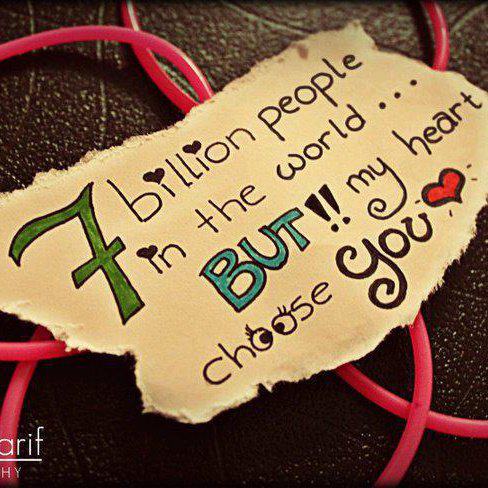 7 billion people
in the world ...
BUT!! my heart
choose you
arif
HY